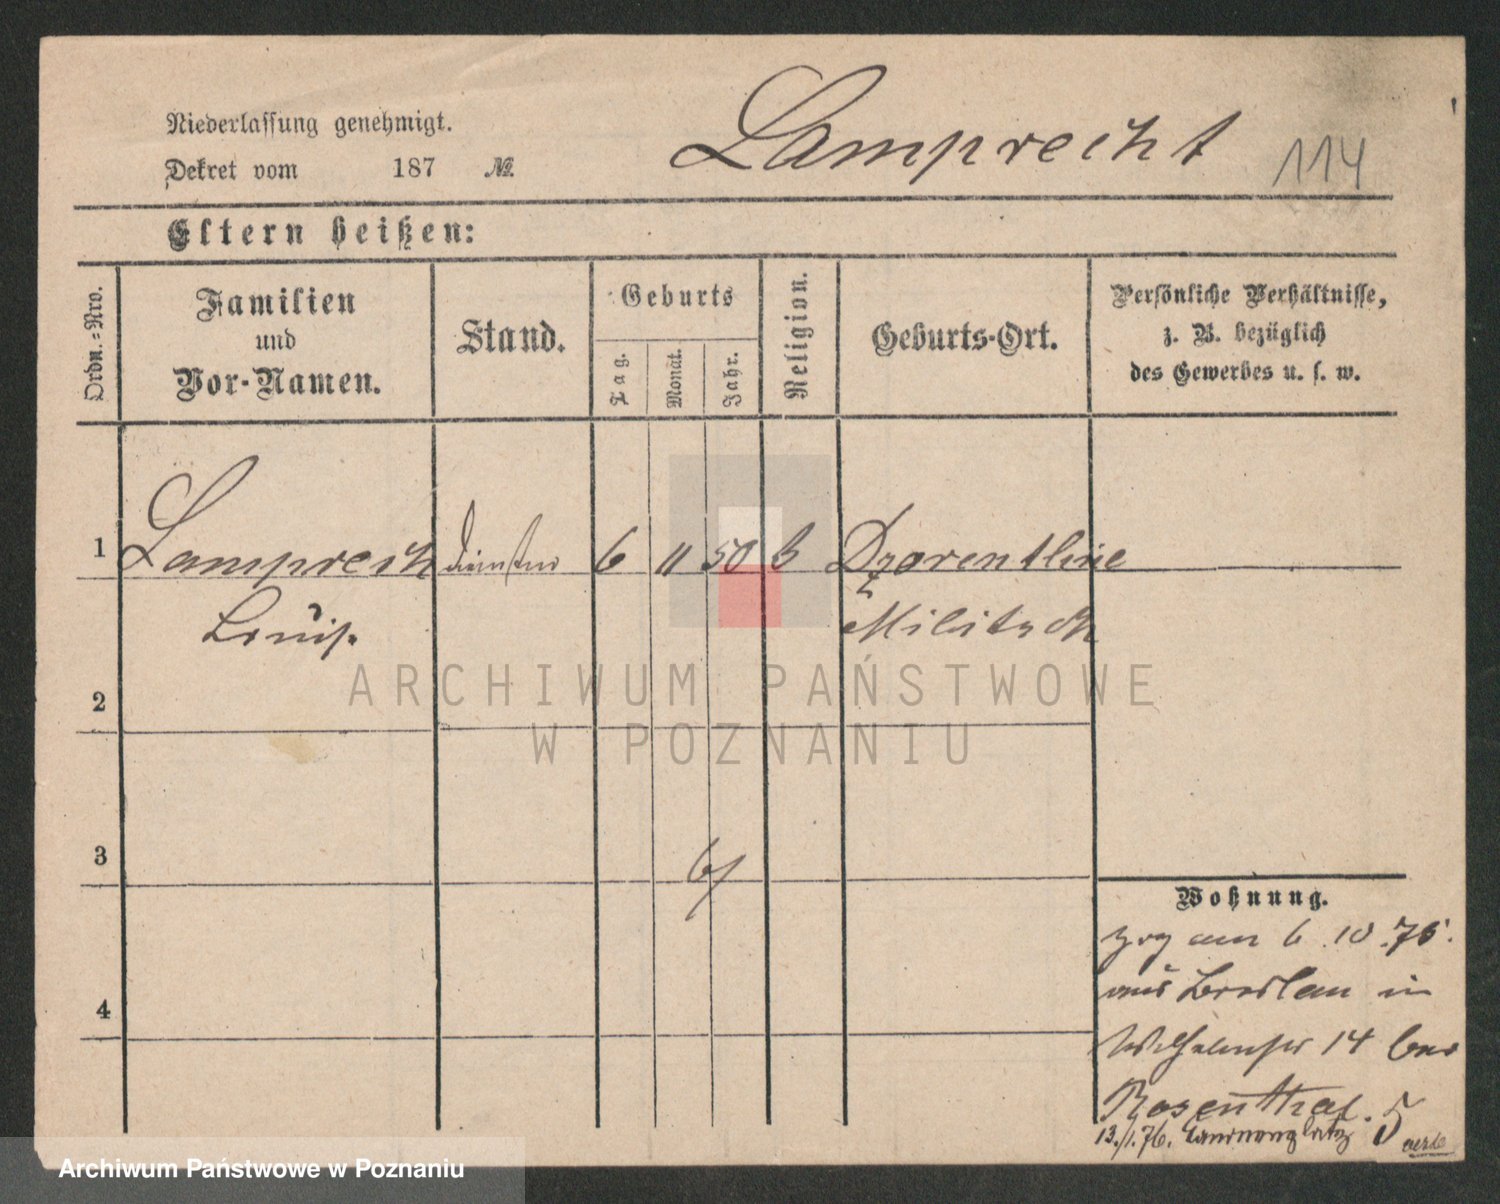 Niederlassung genehmigt.
Dekret vom 187 №
Lamprecht
114
Eltern heißen:
Ordn.-Nro.
Familien
und
Vor-Namen.
Stand.
Geburts
Tag.
Monat.
Jahr.
Religion.
Geburts-Ort.
Persönliche Verhältnisse,
z. B. bezüglich
des Gewerbes u. s. w.
1 Lamprech 6 11 50
Militsch
ARCHIWUM PAŃSTWOWE
W POZNANIU
2
3
Wohnung.
am 6.10.75.
aus Breslau in
4
14 bei
Rosenthal.
13./1.76. 5
Archiwum Państwowe w Poznaniu